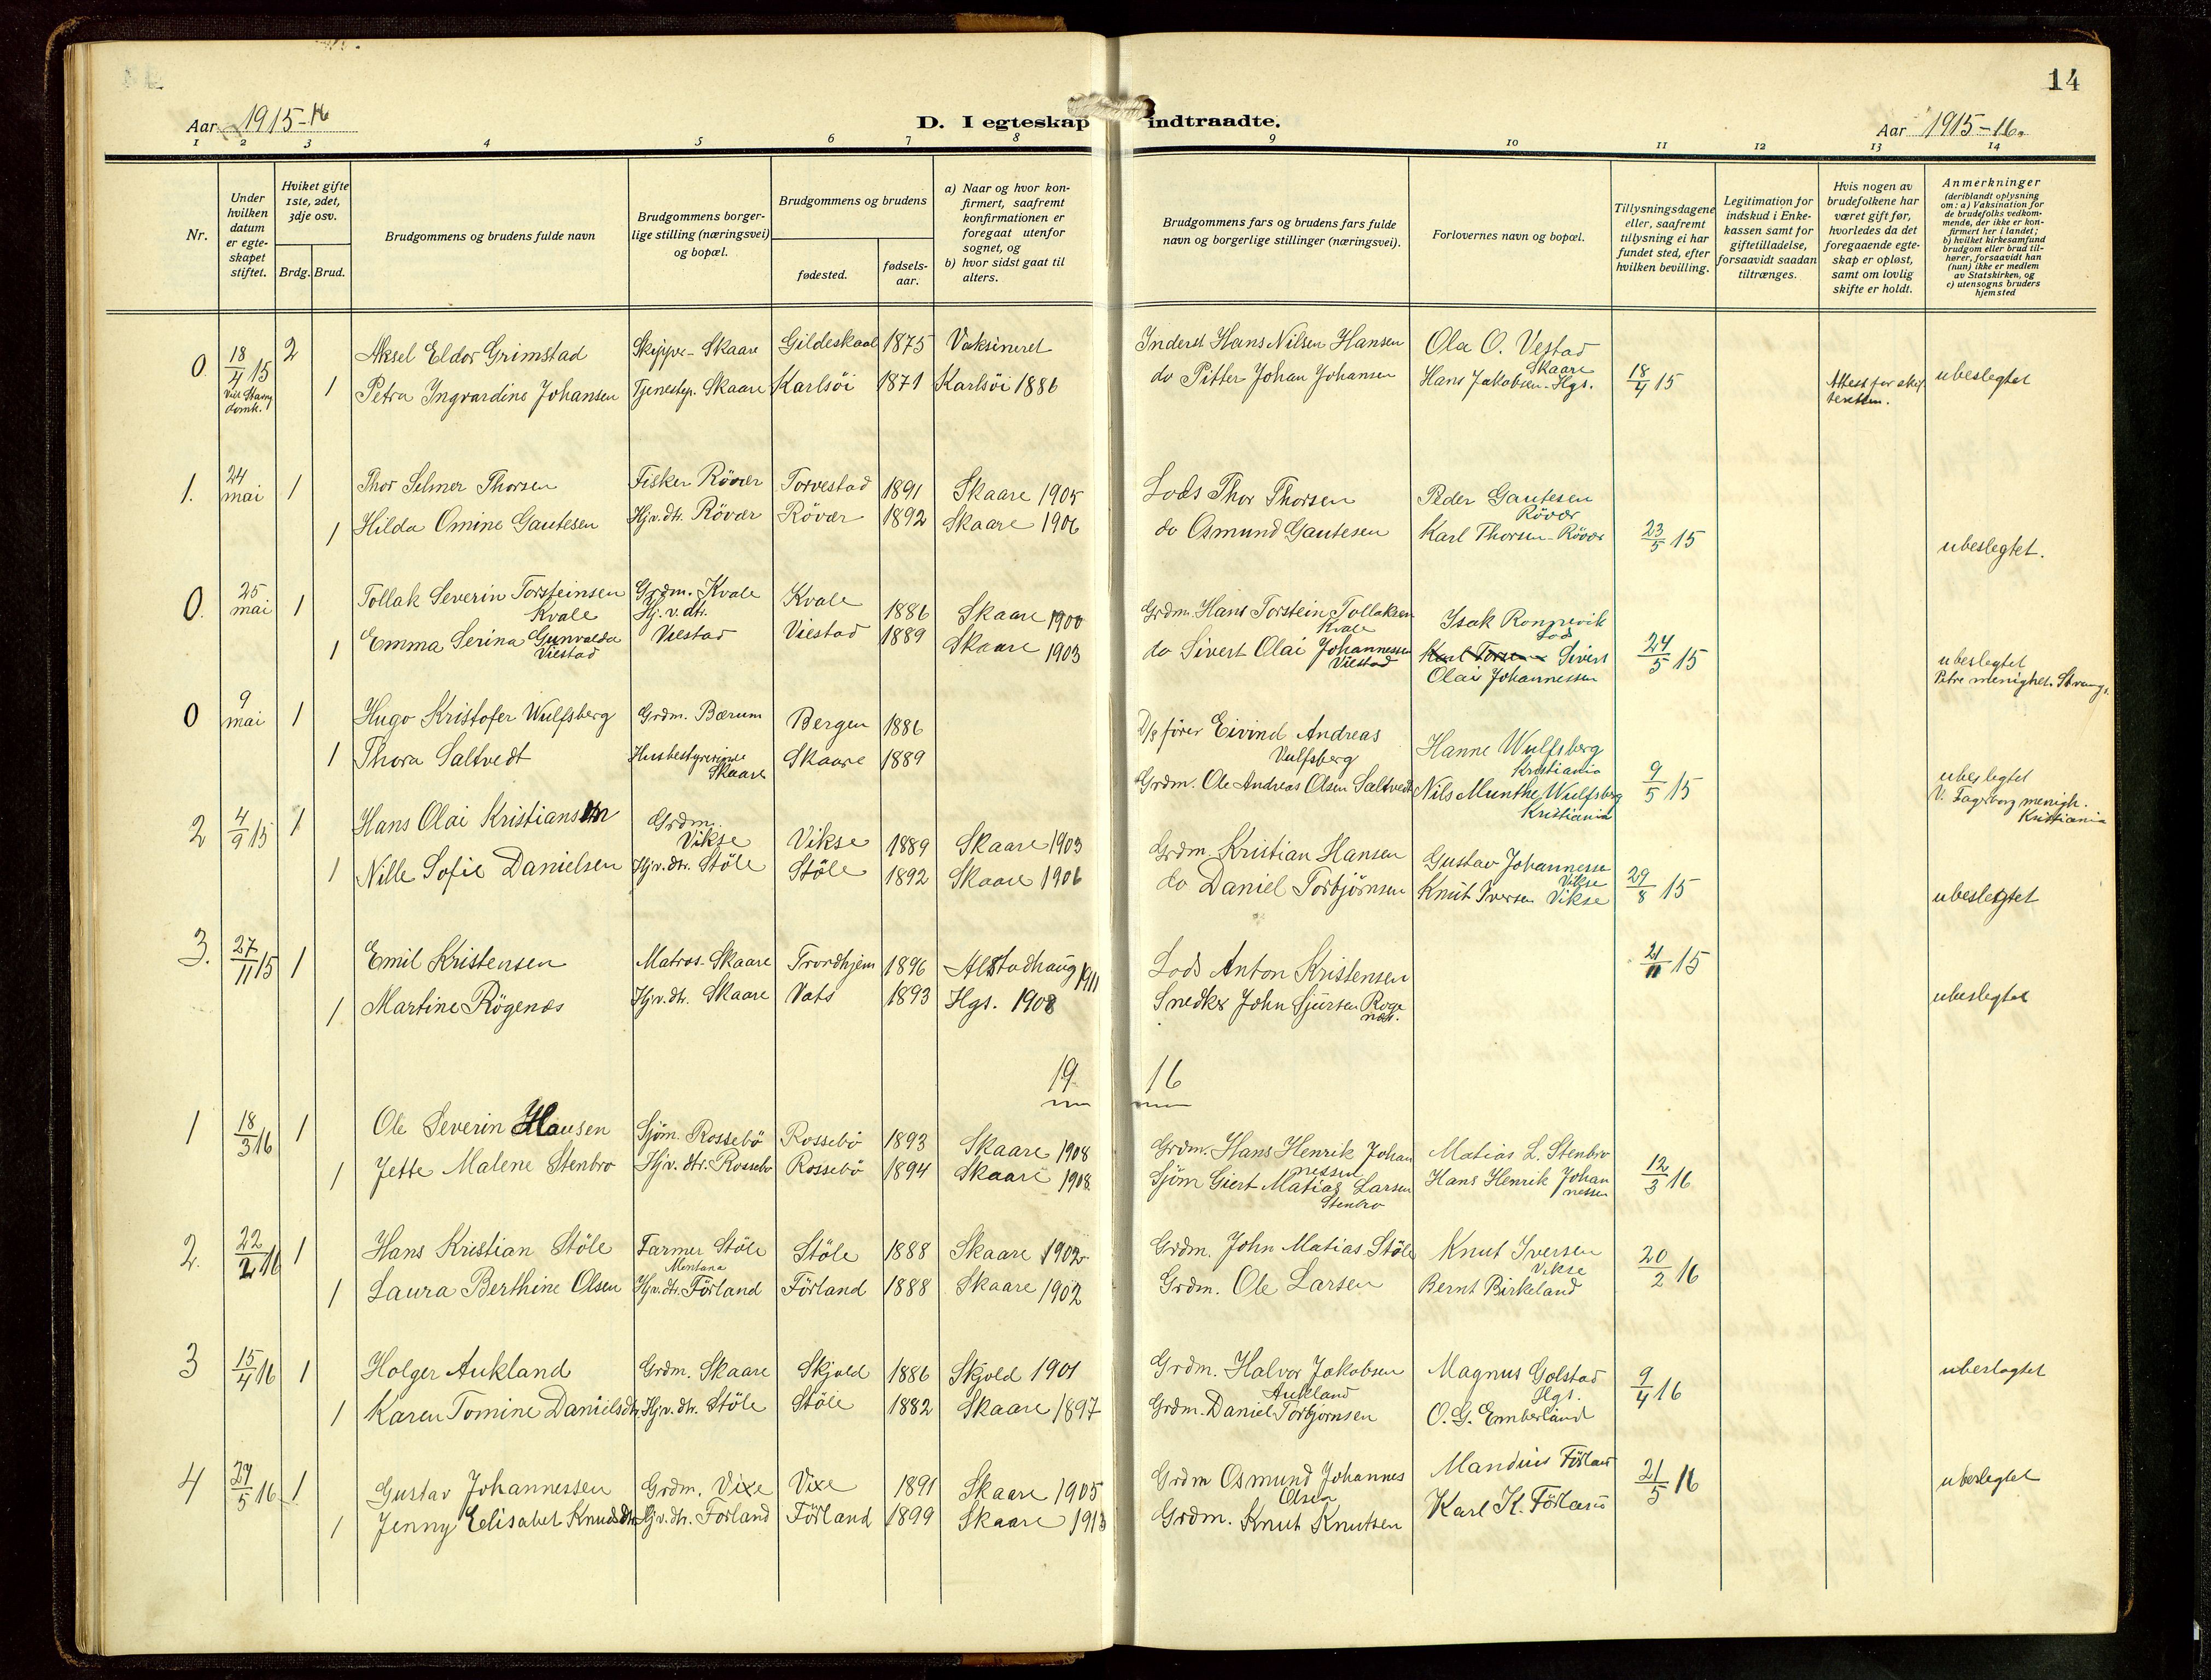 14
Aar 1915-16
D. I egteskap indtraadte.
Aar 1915-16.
1 2 3 4 5 6 7 8 9 10 11 12 13 14
Nr.
Under hvilken datum er egteskapet stiftet.
Hviket gifte 1ste, 2det, 3dje osv.
Brdg. Brud.
Brudgommens og brudens fulde navn
Brudgommens borgerlige stilling (næringsvei) og bopæl.
Brudgommens og brudens
fødested.
fødselsaar.
a) Naar og hvor konfirmert, saafremt konfirmationen er foregaat utenfor sognet, og
b) hvor sidst gaat til alters.
Brudgommens fars og brudens fars fulde navn og borgerlige stillinger (næringsvei).
Forlovernes navn og bopæl.
Tillysningsdagene eller, saafremt tillysning ei har fundet sted, efter hvilken bevilling.
Legitimation for indskud i Enkekassen samt for giftetilladelse, forsaavidt saadan tiltrænges.
Hvis nogen av brudefolkene har været gift før, hvorledes da det foregaaende egteskap er opløst, samt om lovlig skifte er holdt.
Anmerkninger
(deriblandt oplysning om: a) Vaksination for de brudefolks vedkommende, der ikke er konfirmert her i landet;
b) hvilket kirkesamfund brudgom eller brud tilhører, forsaavidt han (hun) ikke er medlem av Statskirken, og
c) utensogns bruders hjemsted
0. 18/4 15 2 Aksel Eldor Grimstad Skipper - Skaare Gildeskaal 1875 Vaksineret Inderst Hans Nilsen Hansen Ola O. Vestad Skaare
1 Petra Ingvardine Johansen Tjenestep. Skaare Karlsöi 1871 Karlsöi 1886 do Pitter Johan Johansen Hans Jakobsen - Hgs. 18/4 15 Attest for ubeslegtet
1. 24 mai 1 Thor Selmer Thorsen Fisker Rövær Torvestad 1891 Skaare 1905 Lods Thor Thorsen Peder Gautesen Rövær
1 Hilda Omine Gautesen Hjv. dtr. Rövær Rövær 1892 Skaare 1906 do Osmund Gautesen Karl Thorsen - Rövær 23/5 15 ubeslegtet.
0. 25 mai 1 Tollak Severin Torsteinsen Kvale Grdm. Kvale Kvale 1886 Skaare 1900 Grdm. Hans Torstein Tollaksen Kvale Isak Ronnevik
1 Emma Serina Gunvalda Viestad Hj. v. dtr. Viestad Viestad 1889 Skaare 1903 do Sivert Olai Johannessen Viestad Sivert Olai Johannessen 24/5 15 ubeslegtet Petri menighet. Stvang.
0 9 mai 1 Hugo Kristofer Wulfsberg Grdm. Bærum Bergen 1886 D/s förer Eivind Andreas Vulfsberg Hanne Wulfsberg Kristiania
1 Thora Saltvedt Husbestyrerinne Skaare Skaare 1889 Grdm. Ole Andreas Olsen Saltvedt Nils Munthe Wulfsberg Kristiania 9/5 15 ubeslegtet V. Fagerborg menigh. Kristiania
2 4/9 15 1 Hans Olai Kristiansen Grdm. Vikse Vikse 1889 Skaare 1903 Grdm. Kristian Hansen Gustav Johannessen Vikse
1 Nille Sofie Danielsen Hjv. dtr. Stöle Stöle 1892 Skaare 1906 do Daniel Torbjørnsen Knut Iversen Vikse 29/8 15 ubeslegtet
3. 27/11 15 1 Emil Kristensen Matros - Skaare Trondhjem 1896 Alstadhaug 1911 Lods Anton Kristensen 21/11 15
1 Martine Rögenæs Hjv. dtr. Skaare Vats 1893 Hgs. 1908 Snedker John Sjursen Rogenæs. ubeslegtet
19 16
1 18/3 16 1 Ole Severin Hansen Sjöm. Rossebö Rossebö 1893 Skaare 1908 Grdm. Hans Henrik Johannessen Matias L. Stenbro
1 Jette Malene Stenbro Hjv. dtr. Rossebö Rossebö 1894 Skaare 1908 Sjöm Giert Matias Larsen Stenbro Hans Henrik Johannessen 12/3 16
2. 22/2 16 1 Hans Kristian Stöle Farmer Stöle Montana Stöle 1888 Skaare 1902 Grdm. John Matias Stöle Knut Iversen Vikse
1 Laura Berthine Olsen Hjv. dtr. Förland Förland 1888 Skaare 1902 Grdm. Ole Larsen Bernt Birkeland 20/2 16
3 15/4 16 1 Holger Aukland Grdm. Skaare Skjold 1886 Skjold 1901 Grdm. Halvor Jakobsen Aukland Magnus Golstad Hgs. ubeslegtet
1 Karen Tomine Danielsdtr. Hjv. dtr. Stöle Stöle 1882 Skaare 1897 Grdm. Daniel Torbjørnsen O. G. Emberland 9/4 16
4 27/5 16 1 Gustav Johannessen Grdm. Vixe Vixe 1891 Skaare 1905 Grdm Osmund Johannes Olsen Mandius Förland ubeslegtet
1 Jenny Elisabet Knudsdtr. Hjv. dtr. Förland Förland 1899 Skaare 1913 Grdm. Knut Knutsen Karl K. Förland 21/5 16